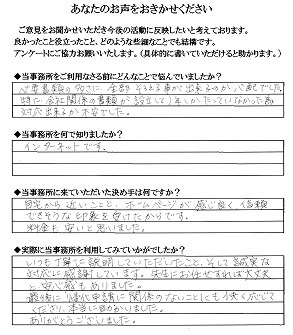 あなたのお声をおきかせください
ご意見をお聞かせいただき今後の活動に反映したいと考えております。
良かったこと役立ったこと、どのような些細なことでも結構です。
アンケートにご協力お願いいたします。（具体的に書いていただけると助かります。）
◆当事務所をご利用なさる前にどんなことで悩んでいましたか？
必要書類の多さに、全部そろえる事が出来るのか心配でした
特に会社関係の書類が設立して1年しかたっていなかった為
対応出来るか不安でした。
◆当事務所を何で知りましたか？
インターネットです。
◆当事務所に来ていただいた決め手は何ですか？
自宅から近いことと、ホームページが感じ良く信頼
できそうな印象を受けたからです。
料金も安いと思いました。
◆実際に当事務所を利用してみていかがでしたか？
いつも丁寧に説明していただいたこと、そして誠実な
対応に感謝しています。先生にお任せすれば大丈夫
と、安心感もありました。
最後に、帰化申請に関係のないことにも快く応じて
くださり、本当に助かりました。
ありがとうございました。